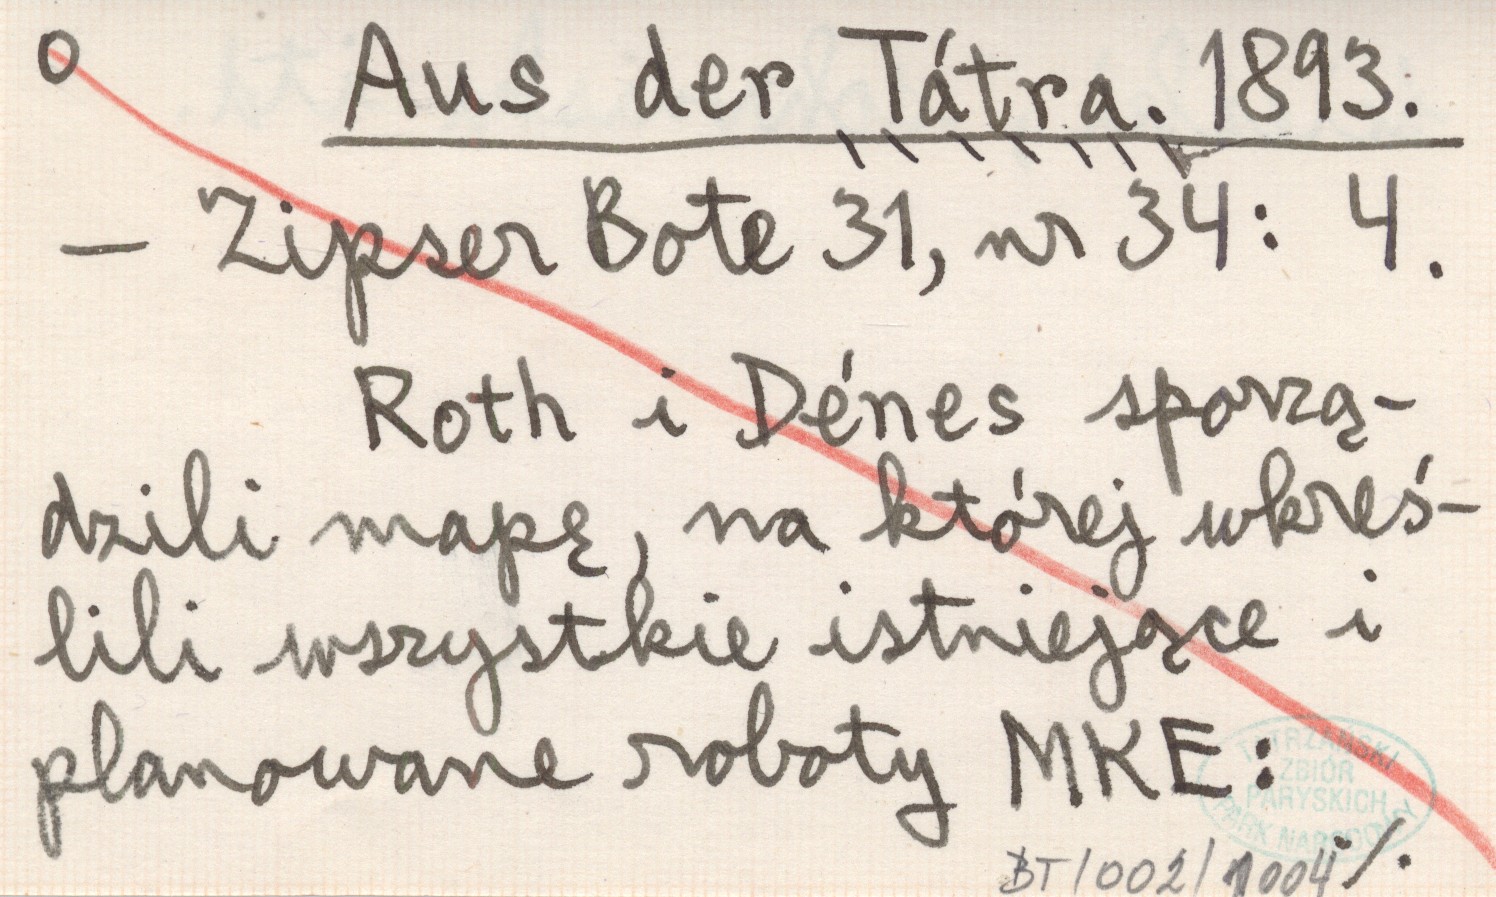 o Aus der Tátra. 1893.
— Zipser Bote 31, nr 34: 4.
Roth i Dénes sporzą-
dzili mapę, na której wkreś-
lili wszystkie istniejące i
planowane roboty MKE:
TATRZAŃSKI
ZBIÓR
PARYSKICH
PARK NARODOWY
·/·
BT/002/1004